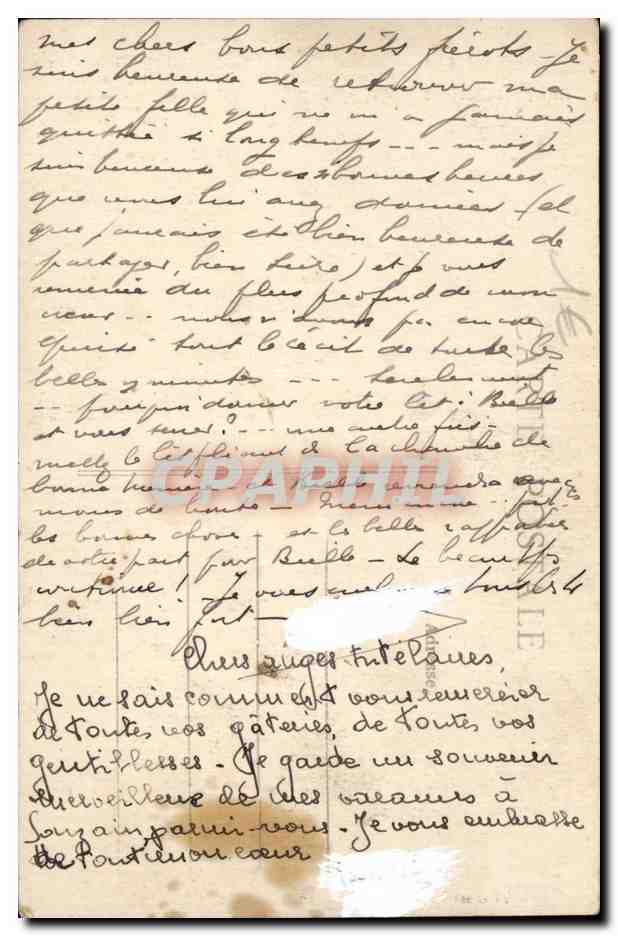 mes chers bons petits Je
suis heureuse de retrouver ma
petite fille qui ne m'a jamais
quittée si longtemps --- mais je
suis heureuse des bonnes heures
que vous lui avez données (et
que j'aurais été bien heureuse de
partager, bien sûre) et je vous
remercie du plus profond de mon
cœur -- nous n'avons pas encore
épuisé tout le récit de toutes les
belles minutes --- seulement
-- pourquoi donner votre lit à Bielle
et vous serrer? -- une autre fois -
mettez le lit pliant ds la chambre de
bonne et Bielle reviendra avec
moins de honte - merci pr ttes
les bonnes choses - et la belle
de votre part pour Bielle - Le beau tps
continue! Je vous tous les 4
bien bien fort -
Chers anges tutélaires,
Je ne sais comment vous remercier
de toutes vos gâteries, de toutes vos
gentillesses - Je garde un souvenir
merveilleux de mes vacances à
parmi vous - Je vous embrasse
de tout mon cœur
CARTE POSTALE
Adresse
1€
CPAPHIL